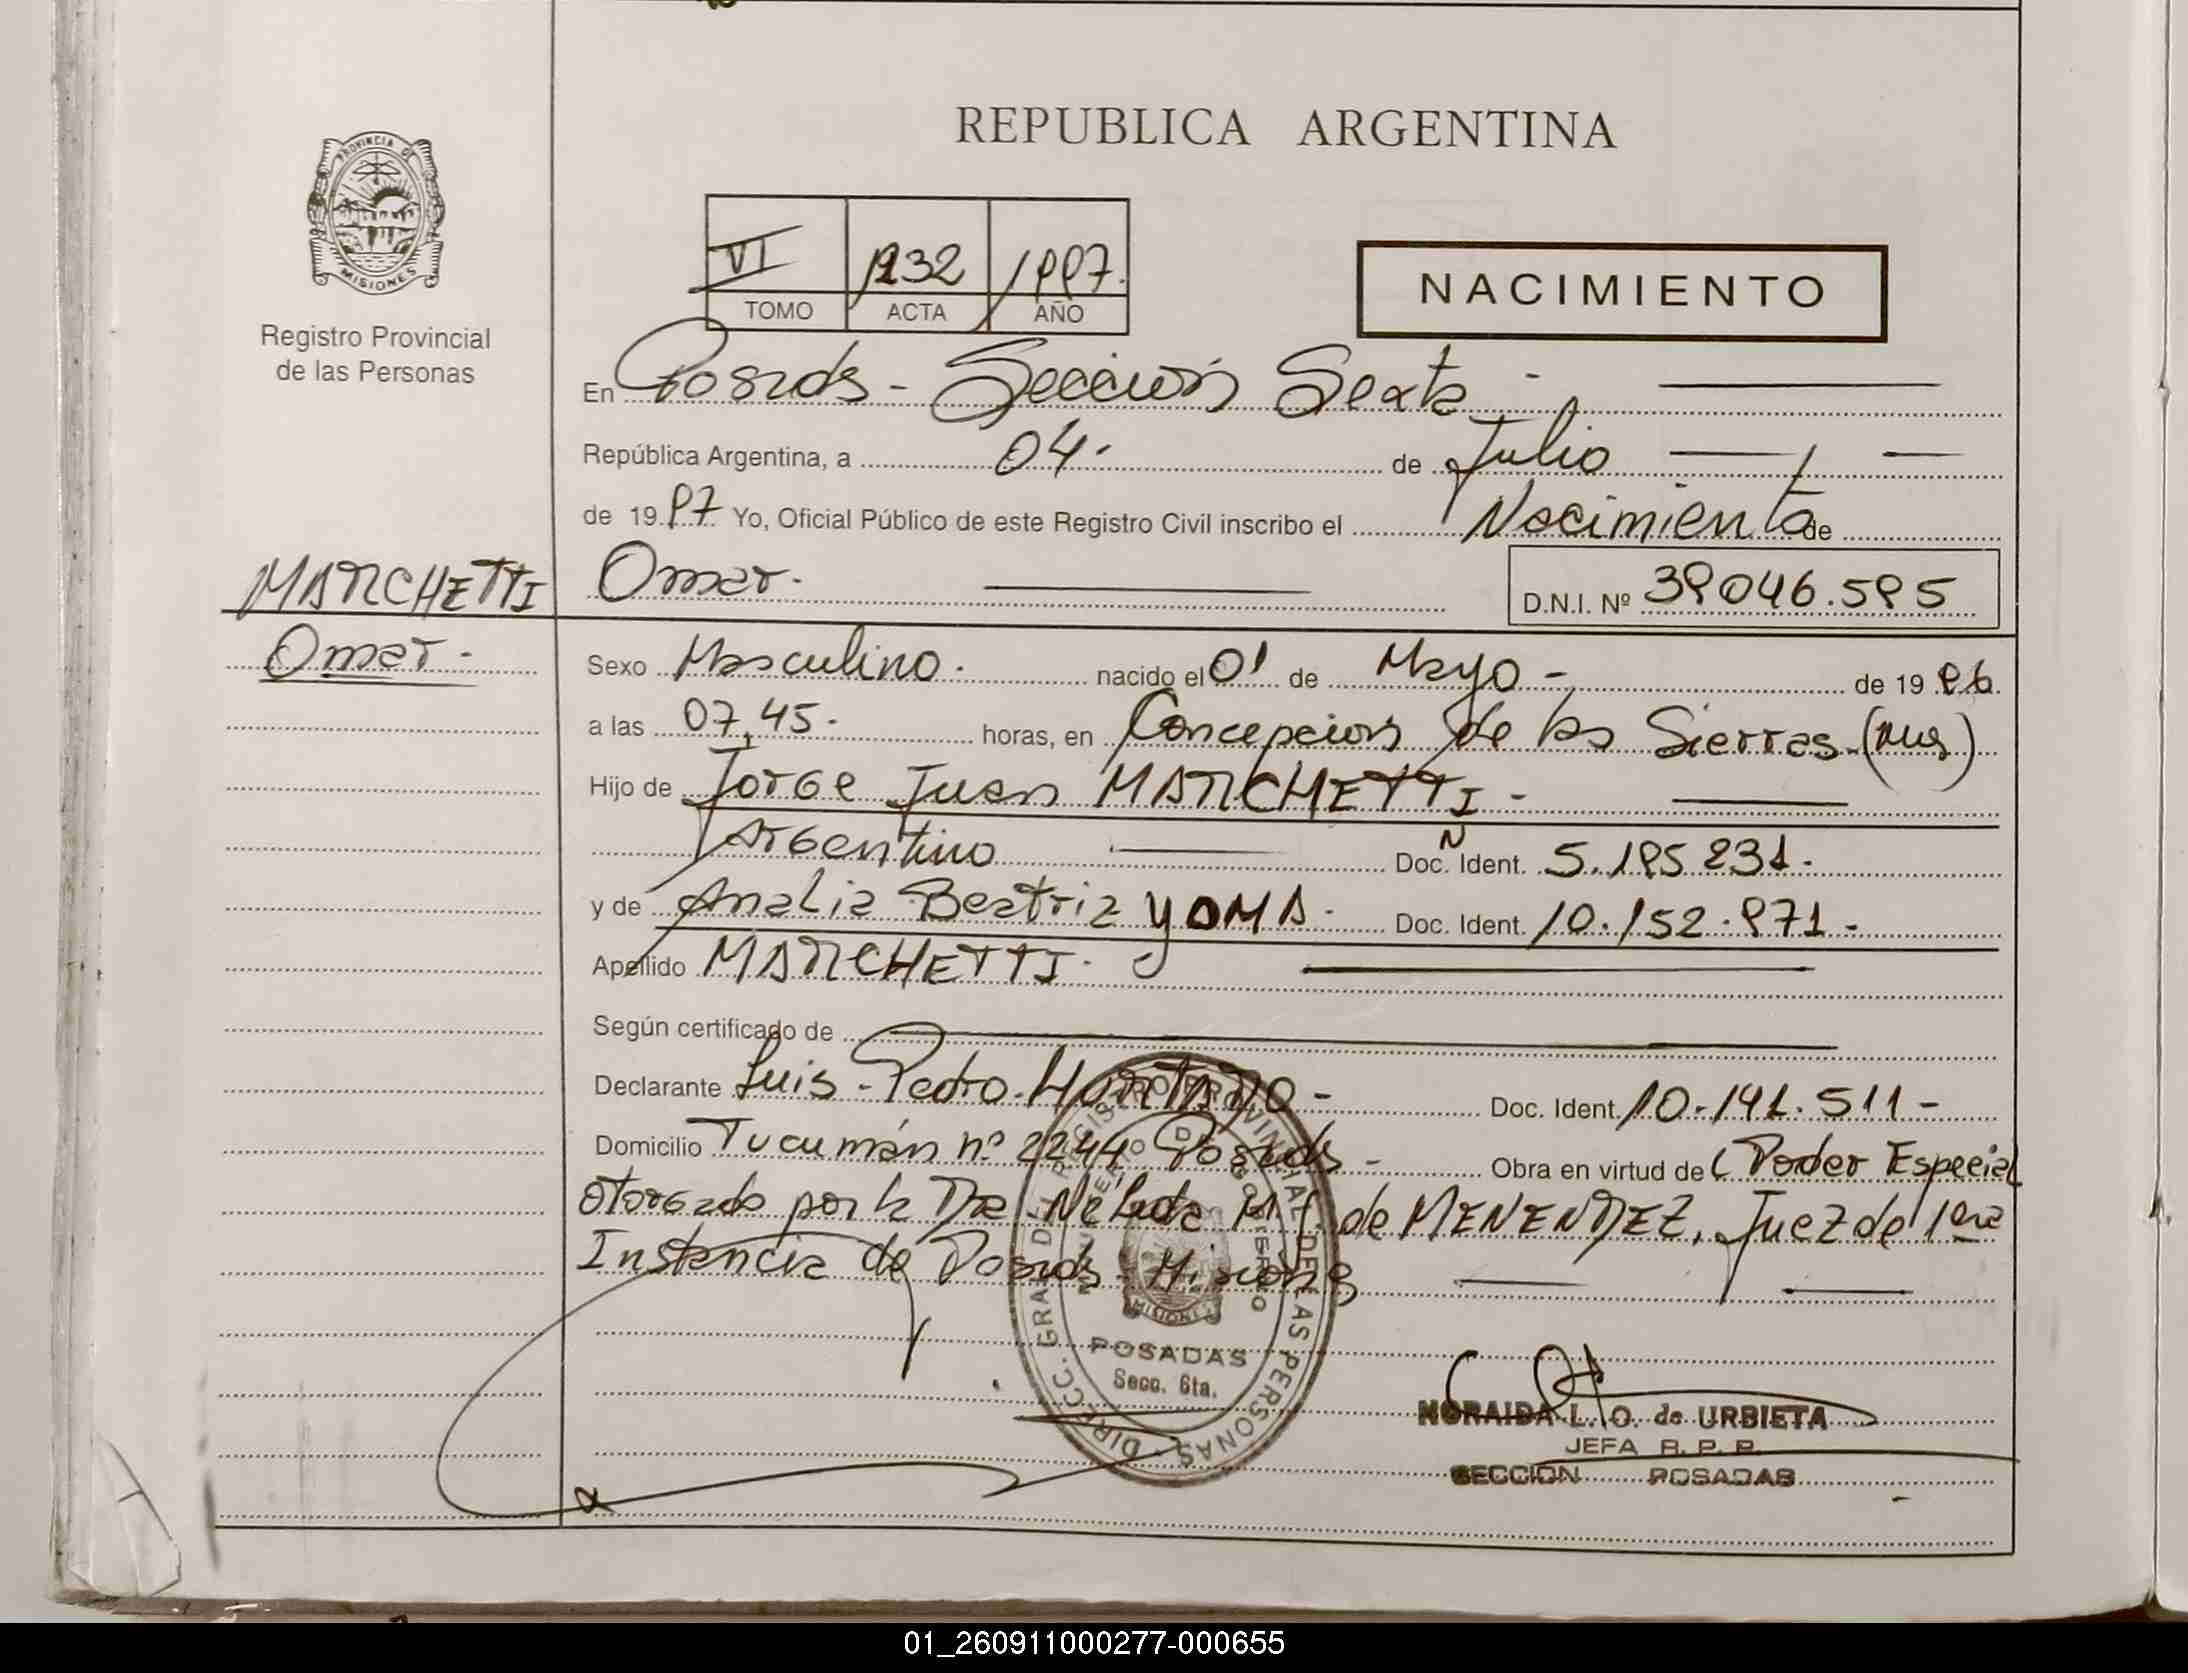 REPUBLICA ARGENTINA
PROVINCIA DE
MISIONES
Registro Provincial
de las Personas
VI 1232 1997.
TOMO ACTA AÑO
NACIMIENTO
En Posadas - Sección Sexta -
República Argentina, a 04. de Julio
de 1997 Yo, Oficial Público de este Registro Civil inscribo el Nacimiento de
MARCHETTI
Omar.
Omar.
D.N.I. Nº 39046.595
Sexo Masculino. nacido el 01 de Mayo - de 1996.
a las 07,45. horas, en Concepcion de las Sierras (Mnes)
Hijo de Jorge Juan MARCHETTI -
Argentino Doc. N Ident. 5.195.231.
y de Analia Beatriz YOMA. Doc. Ident. 10.152.971.-
Apellido MARCHETTI.
Según certificado de
Declarante Luis Pedro HURTADO - Doc. Ident. 10.141.511 -
Domicilio Tucumán nº 2244 Posadas - Obra en virtud de Poder Especial
otorgado por la Dra Nélida M. de MENENDEZ, Juez de 1era
Instancia de Posadas - Misiones
DIRECC. GRAL DEL REGISTRO PROVINCIAL DE LAS PERSONAS
MINISTERIO DE GOBIERNO
MISIONES
POSADAS
Secc. 6ta.
NORAIDA L. O. de URBIETA
JEFA R. P. P.
SECCION POSADAS
01_260911000277-000655